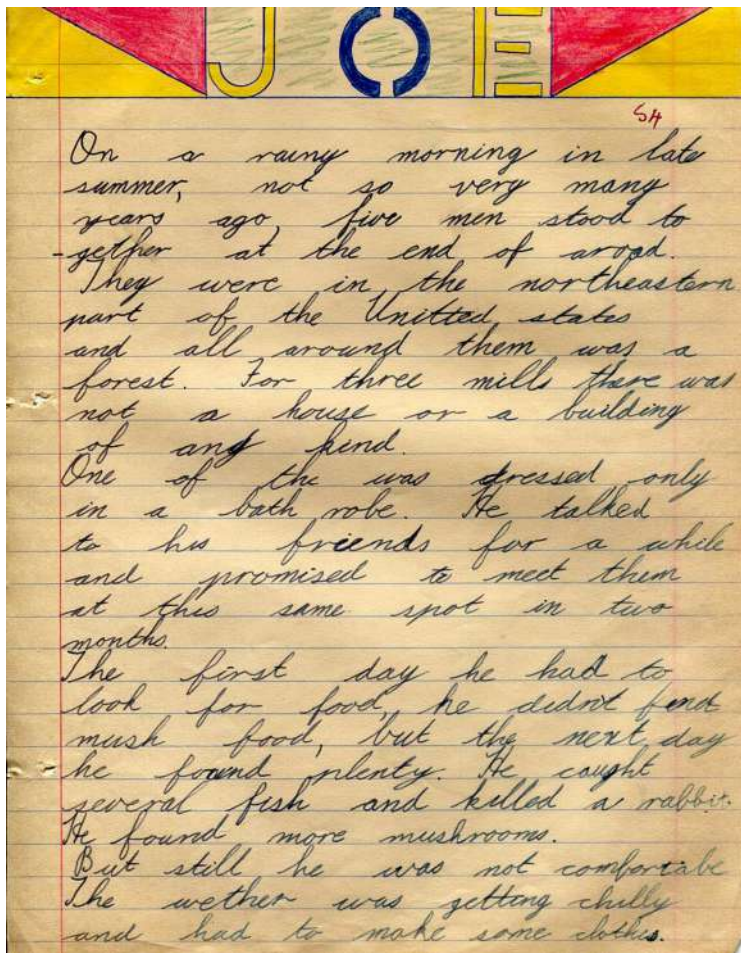 JOE
54
On a rainy morning in late
summer, not so very many
years ago, five men stood to
-gether at the end of aroad.
They were in the northeastern
part of the Unitted states
and all around them was a
forest. For three mills there was
not a house or a building
of any kind.
One of the was dressed only
in a bath robe. He talked
to his friends for a while
and promised to meet them
at this same spot in two
months.
The first day he had to
look for food, he didnt find
mush food, but the next day
he found plenty. He caught
several fish and killed a rabbit.
He found more mushrooms.
But still he was not comfortabe
The wether was getting chilly
and had to make some clothes.